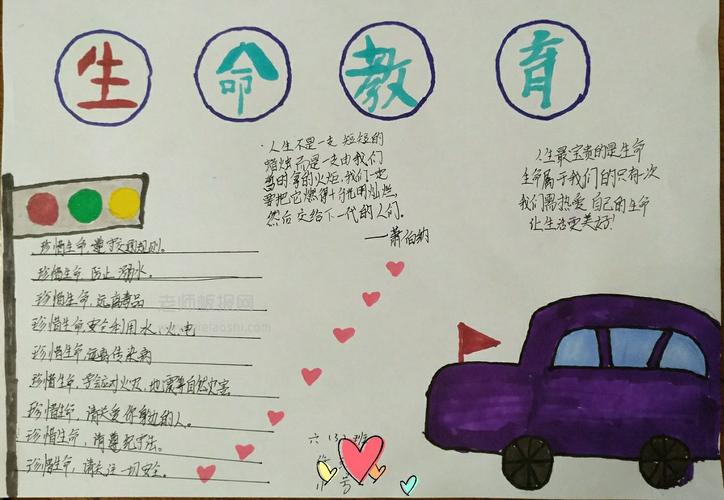 生命教育
人生不是一支短短的
蜡烛而是一支由我们
暂时拿的火炬,我们一定
要把它燃得十分光明灿烂,
然后交给下一代的人们。
——萧伯纳
人生最宝贵的是生命
生命属于我们的只有一次
我们需热爱自己的生命
让生活更美好!
珍惜生命,遵守交通规则。
珍惜生命,防止溺水。
珍惜生命,远离毒品
珍惜生命,安全利用水、火、电
珍惜生命,远离传染病
珍惜生命,学会应对火灾,地震等自然灾害
珍惜生命,请关爱你身边的人。
珍惜生命,请遵纪守法。
珍惜生命,请关注一切安全。
老师板报网
六(3)班
号